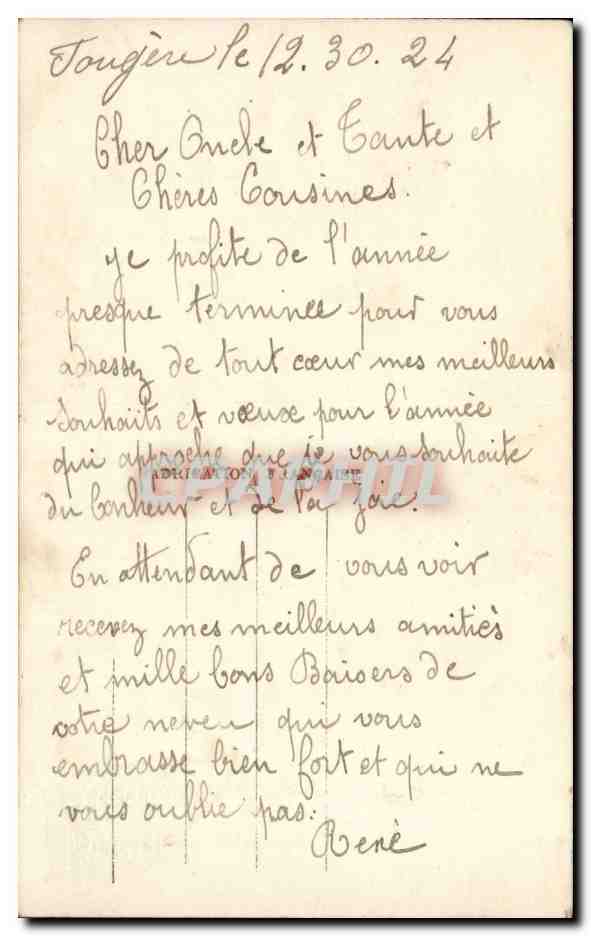 Fougère le 12.30.24
Cher Oncle et Tante et
Chères Cousines.
Je profite de l'année
presque terminée pour vous
adressez de tout cœur mes meilleurs
Souhaits et vœux pour l'année
qui approche que je vous Souhaite
FABRICATION FRANÇAISE
CPAPHIL
du bonheur et de la Joie.
En attendant de vous voir
recevez mes meilleurs amitiés
et mille bons Baisers de
votre neveu qui vous
embrasse bien fort et qui ne
vous oublie pas.
René